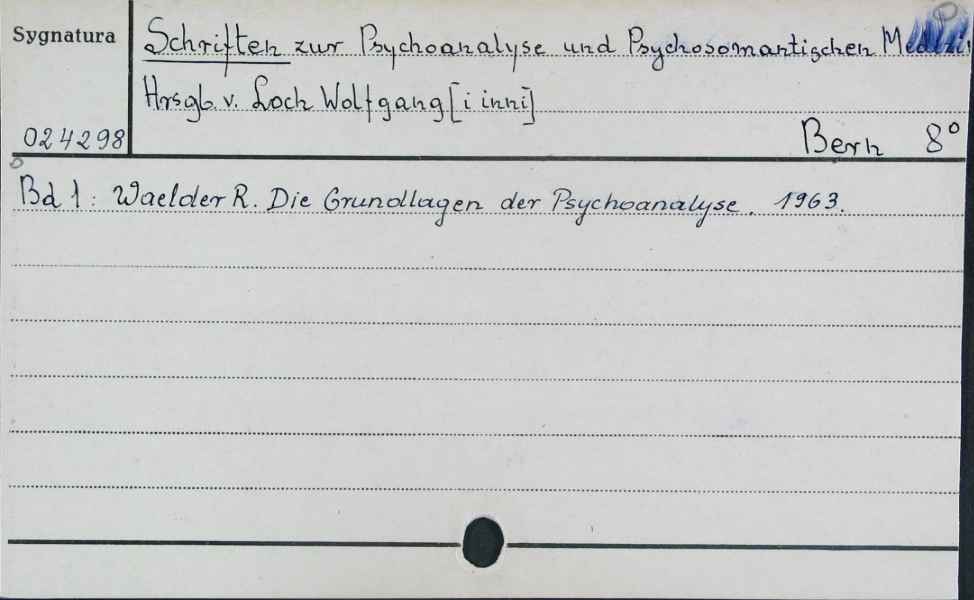 Sygnatura
Schriften zur Psychoanalyse und Psychosomantischen Medizin
Hrsgb. v. Loch Wolfgang [i inni]
024298
Bern 8°
Bd 1: Waelder R. Die Grundlagen der Psychoanalyse. 1963.